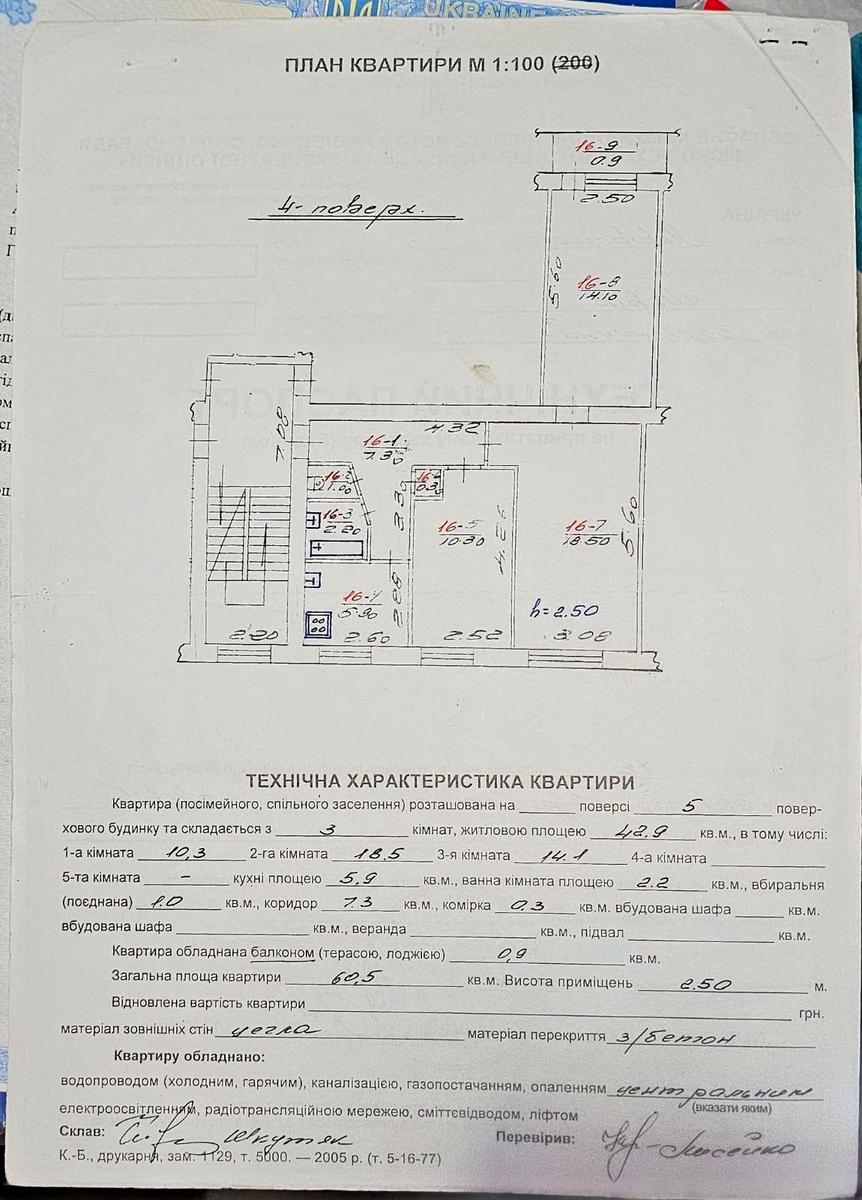 UKRAINE
ПЛАН КВАРТИРИ М 1:100 (200)
4- поверх.
16-9
0.9
2.50
5.60
16-8
14.10
7.08
4.32
16-1
7.30
16-2
1.00
16-6
0.30
3.30
16-3
2.20
16-5
10.30
4.26
16-7
18.50
5.60
16-4
5.90
2.85
h=2.50
2.20
2.60
2.52
3.08
ТЕХНІЧНА ХАРАКТЕРИСТИКА КВАРТИРИ
Квартира (посімейного, спільного заселення) розташована на поверсі 5 повер-
хового будинку та складається з 3 кімнат, житловою площею 42,9 кв.м., в тому числі:
1-а кімната 10,3 2-га кімната 18,5 3-я кімната 14.1 4-а кімната
5-та кімната - кухні площею 5,9 кв.м., ванна кімната площею 2.2 кв.м., вбиральня
(поєднана) 1.0 кв.м., коридор 7.3 кв.м., комірка 0.3 кв.м. вбудована шафа кв.м.
вбудована шафа кв.м., веранда кв.м., підвал кв.м.
Квартира обладнана балконом (терасою, лоджією) 0,9 кв.м.
Загальна площа квартири 60,5 кв.м. Висота приміщень 2.50 м.
Відновлена вартість квартири грн.
матеріал зовнішніх стін цегла матеріал перекриття з/бетон
Квартиру обладнано:
водопроводом (холодним, гарячим), каналізацією, газопостачанням, опаленням центральним
(вказати яким)
електроосвітленням, радіотрансляційною мережею, сміттєвідводом, ліфтом
Склав: Шкутяк Перевірив:
К.-Б., друкарня, зам. 1129, т. 5000. — 2005 р. (т. 5-16-77)